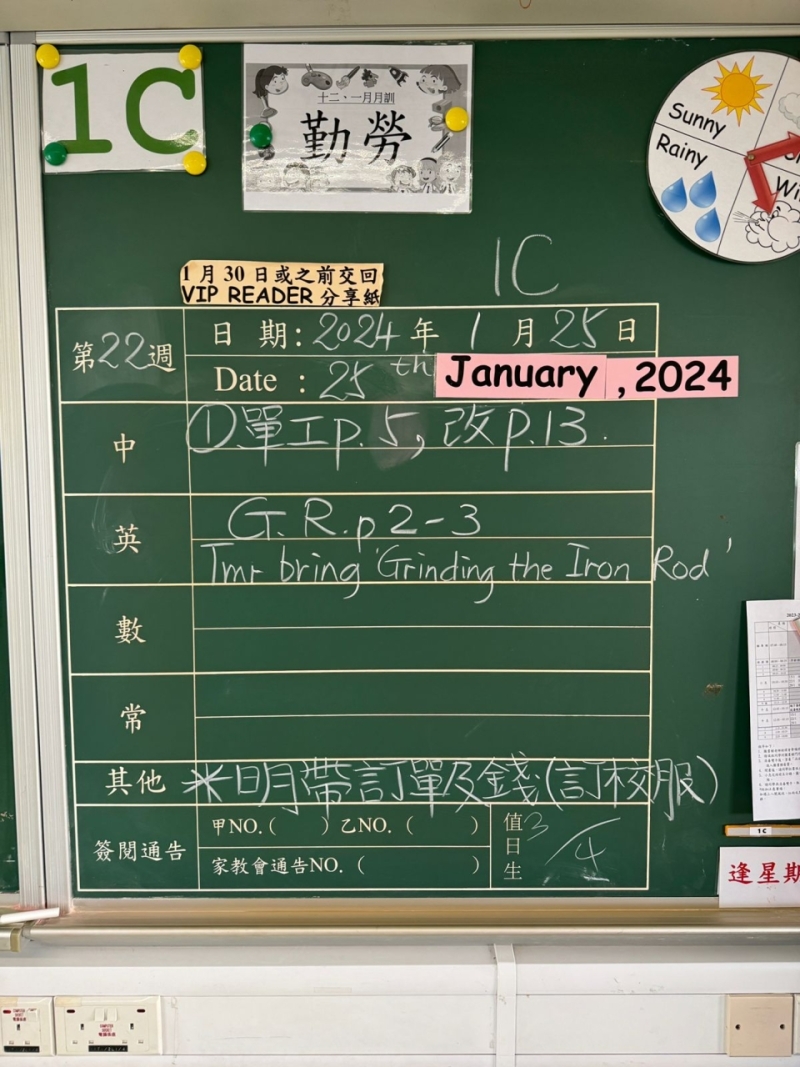 1C
十二、一月月訓
勤勞
Sunny
Rainy
Wi
1C
1月30日或之前交回
VIP READER 分享紙
第22週
日 期：2024年 1 月 25 日
Date : 25th January , 2024
中
①單工p.5，改p.13.
英
G.R.p2-3
Tmr bring 'Grinding the Iron Rod'
數
常
其他
*明帶訂單及錢(訂校服)
簽閱通告
甲NO.( ) 乙NO.( )
家教會通告NO.( )
值日生
3/4
1C
逢星期